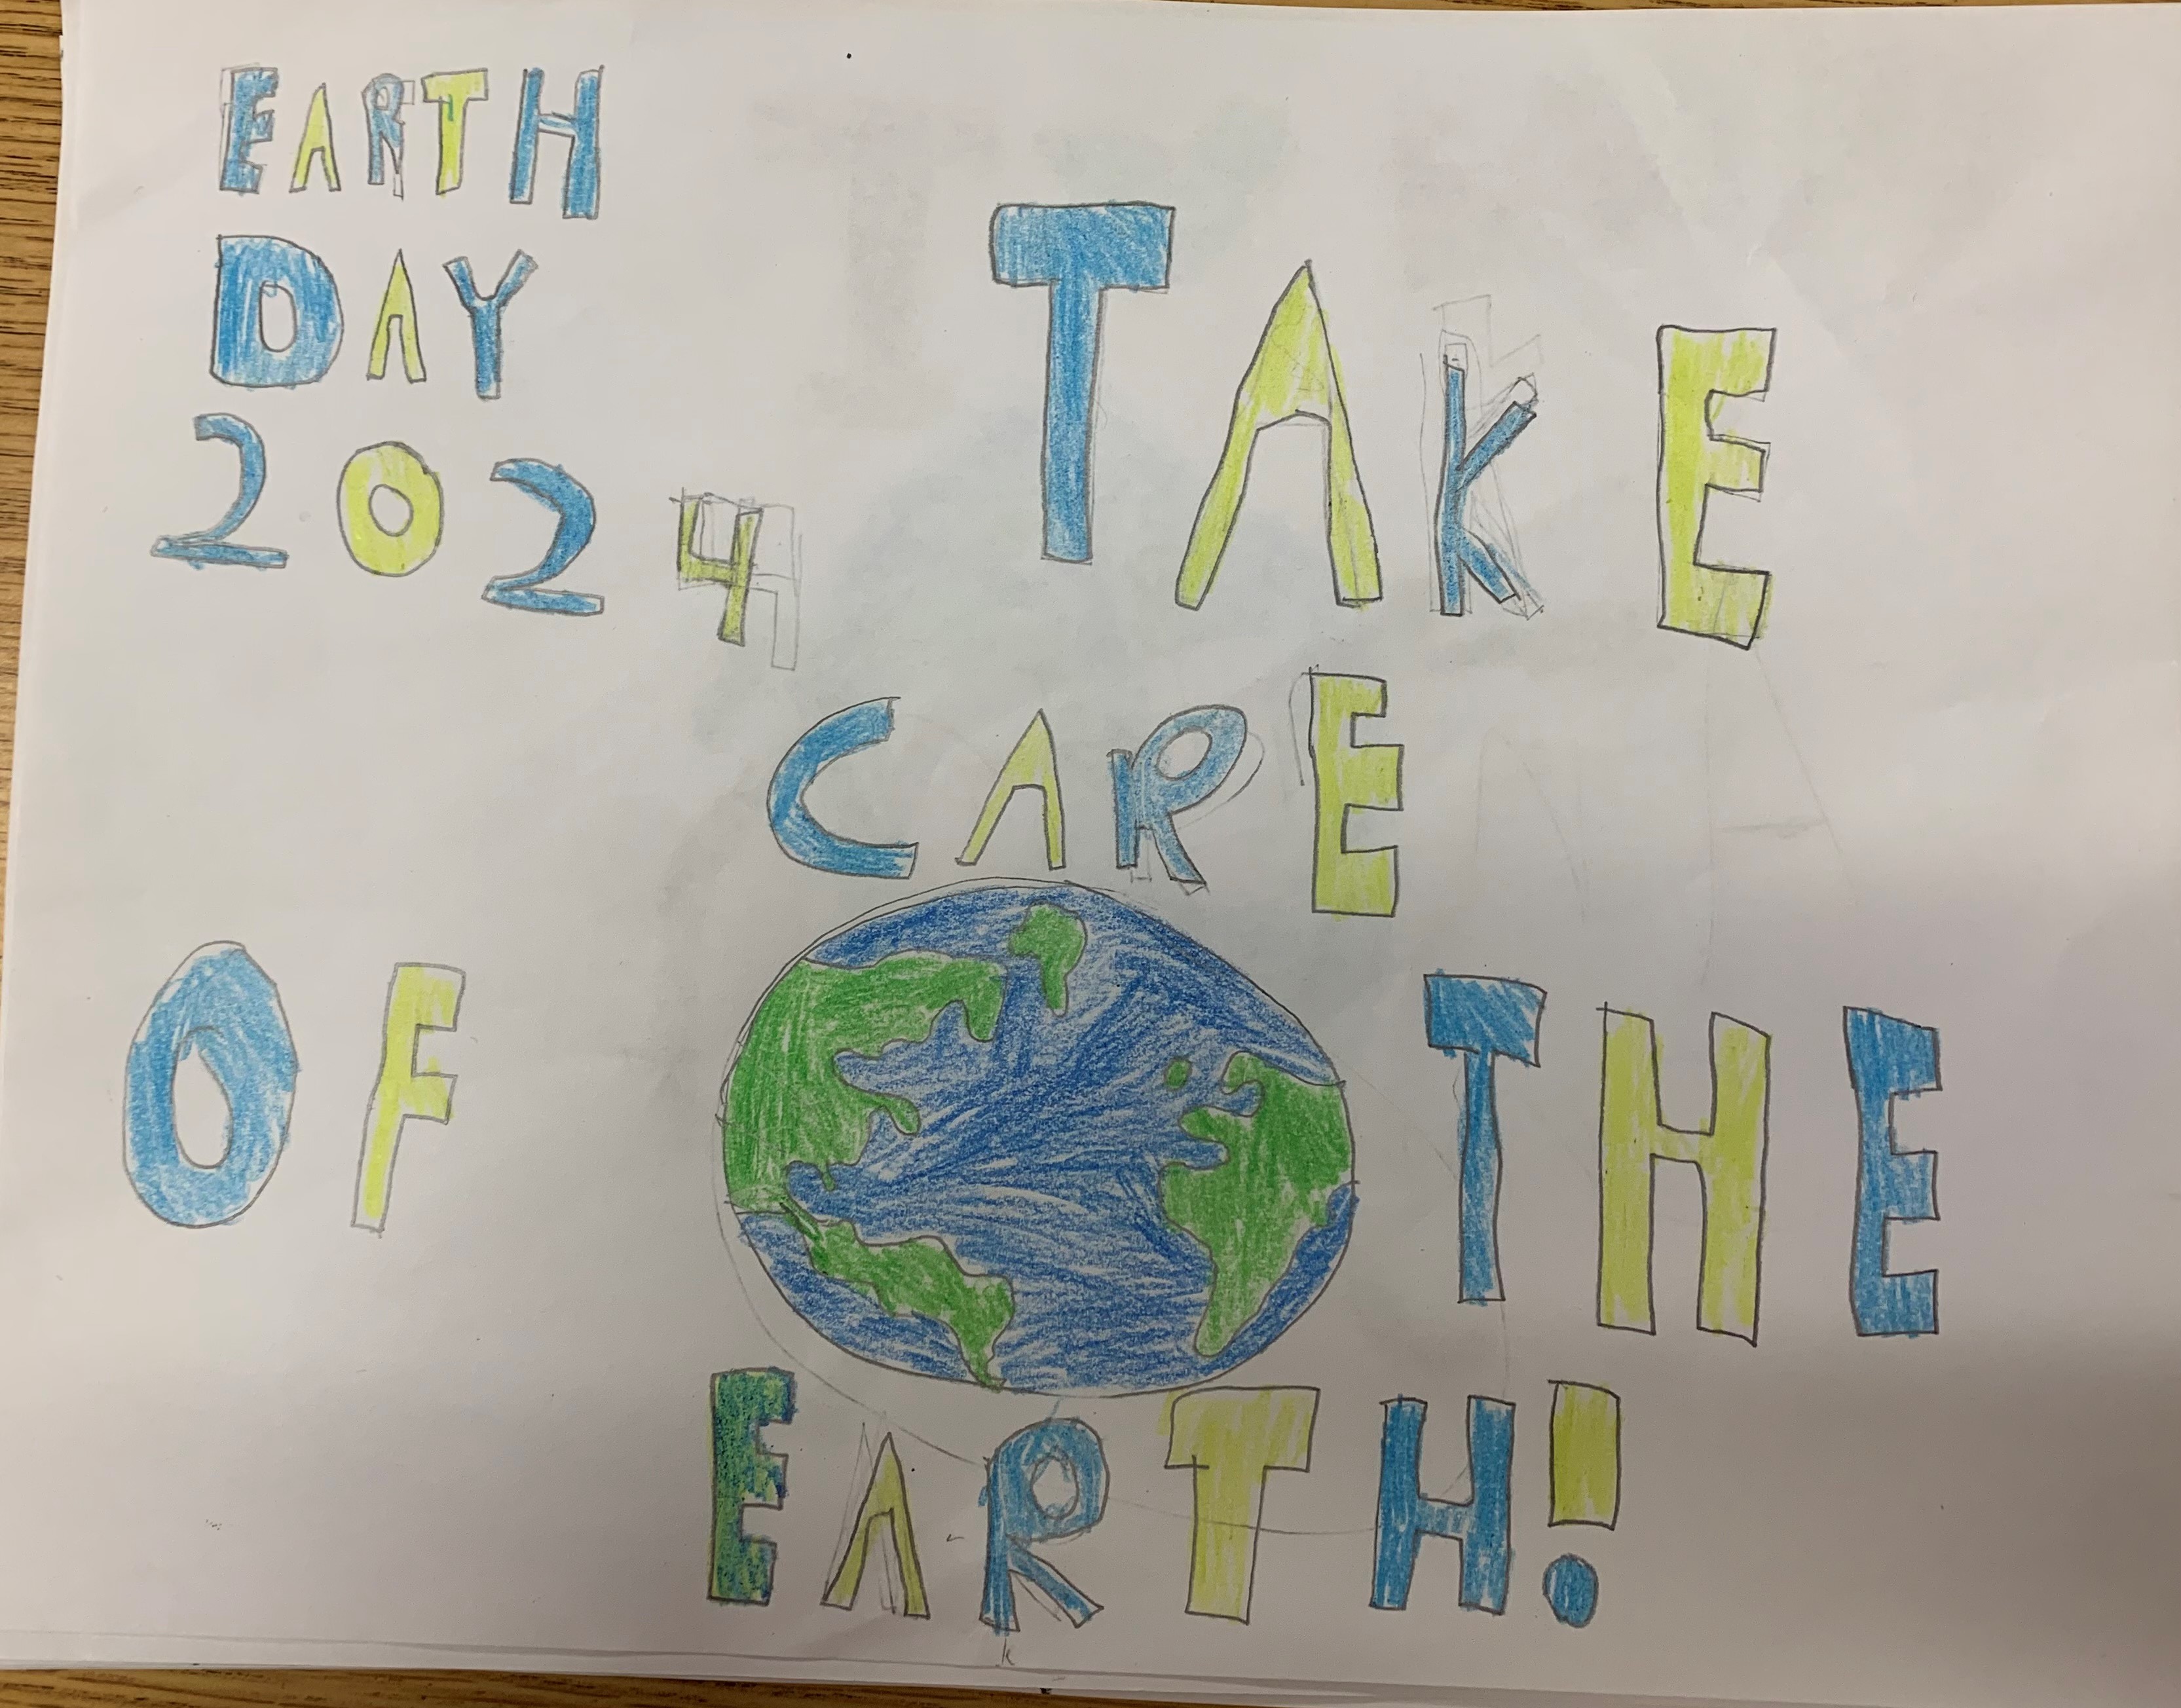 EARTH
DAY
2024
TAKE
CARE
OF THE
EARTH!